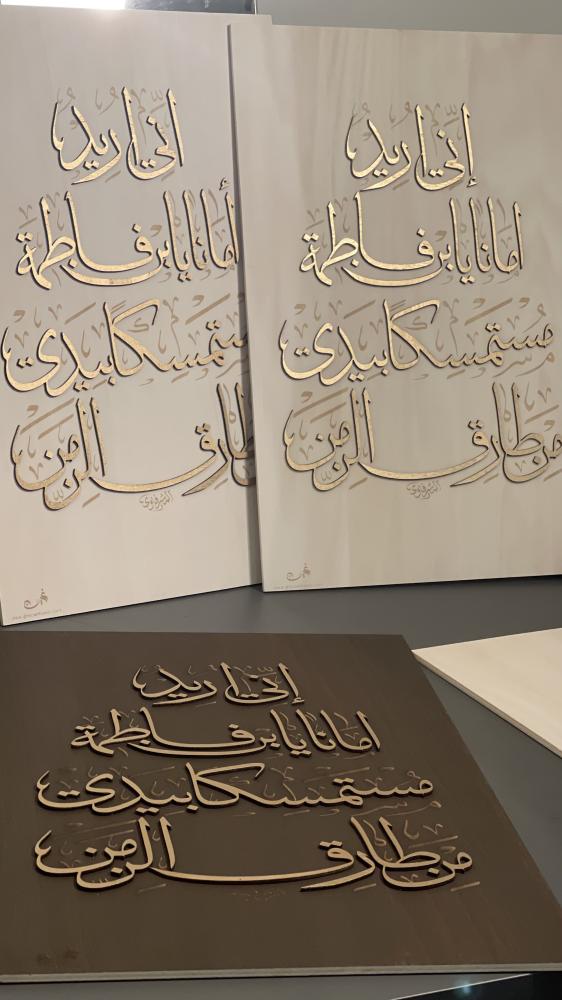 إني أريد
أمانا يا ابن فاطمة
مستمسكا بيدي
من طارق الزمن
إنّي اريد
امانا يا ابن فاطمة
مستمسكا بيدي
من طارق الزمن
إنّي اريد
امانا يا ابن فاطمة
مستمسكا بيدي
من طارق الزمن